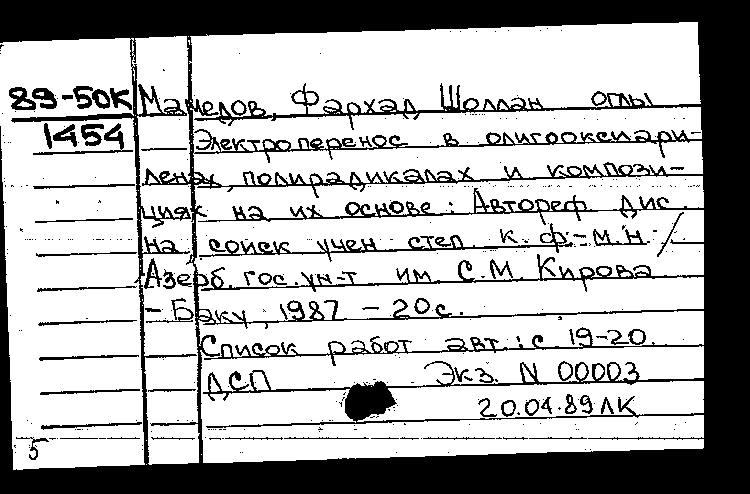 89-50К Мамедов, Фархад Шоллан оглы
1454 Электроперенос в олигооксиари-
ленах, полирадикалах и компози-
циях на их основе: Автореф дис.
на соиск учен степ к. ф.-м.н. /
Азерб. гос. ун-т им. С.М. Кирова
- Баку, 1987 - 20с.
Список работ авт.: с 19-20.
ДСП Экз. N 00003
20.04.89 ЛК
5